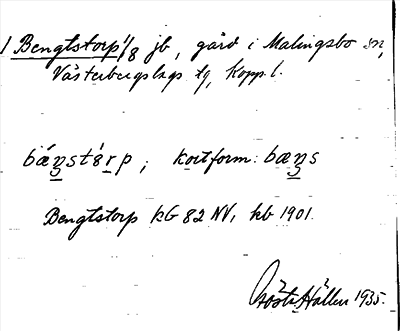 1 Bengtstorp 1/8 jb, gård i Malingsbo sn,
Västerbergslags tg, Kopp. l.
bæ̀n̥st́ɞrp; kortform: bæn̥s
Bengtstorp KG 82 NV, kb 1901.
Gösta Hallen 1935.